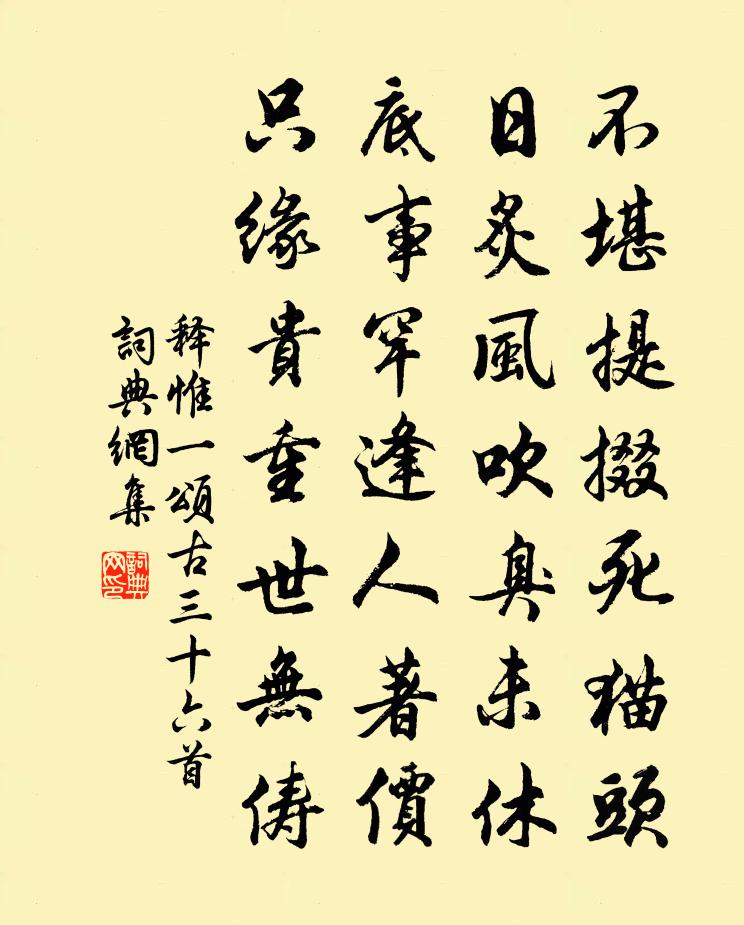 不堪提掇死猫頭
日炙風吹臭未休
底事罕逢人著價
只緣貴重世無儔
释惟一頌古三十六首
詞典網集
詞典网印